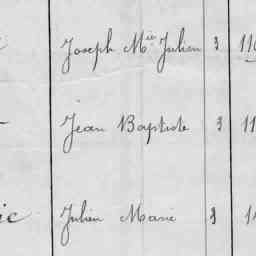 Joseph Mie Julien 3 110
Jean Baptiste 3 11
ie Julien Marie 3